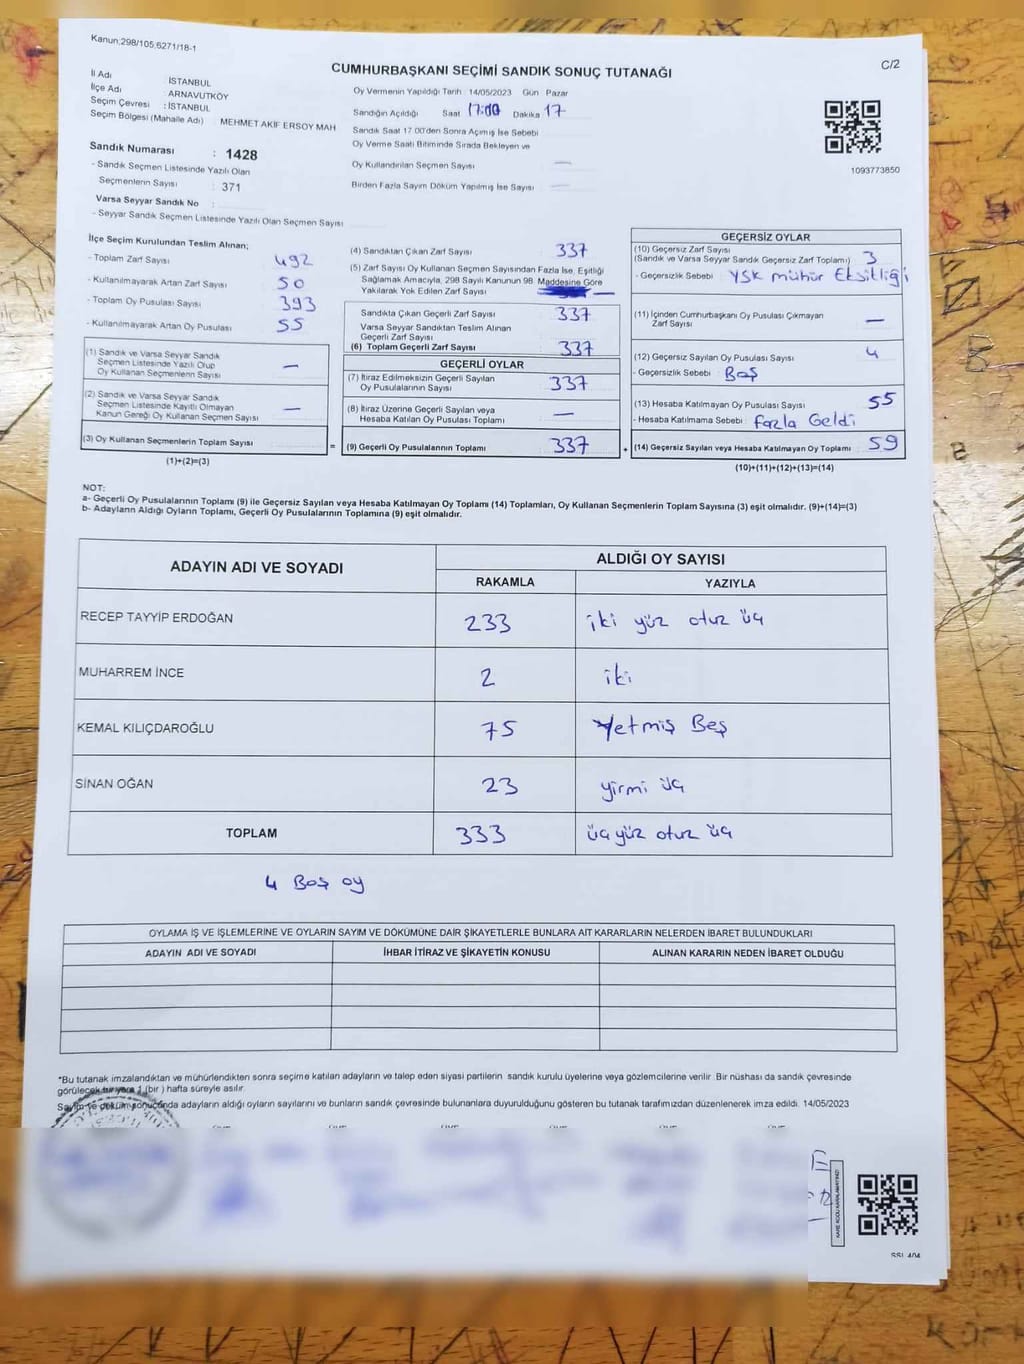 Kanun;298/105,6271/18-1
C/2
CUMHURBAŞKANI SEÇİMİ SANDIK SONUÇ TUTANAĞI
İl Adı : İSTANBUL
İlçe Adı : ARNAVUTKÖY
Seçim Çevresi : İSTANBUL
Seçim Bölgesi (Mahalle Adı) : MEHMET AKİF ERSOY MAH
Sandık Numarası : 1428
- Sandık Seçmen Listesinde Yazılı Olan
Seçmenlerin Sayısı : 371
Varsa Seyyar Sandık No :
- Seyyar Sandık Seçmen Listesinde Yazılı Olan Seçmen Sayısı
Oy Vermenin Yapıldığı Tarih : 14/05/2023 Gün Pazar
Sandığın Açıldığı Saat 17:00 Dakika 17
Sandık Saat 17.00'den Sonra Açımış İse Sebebi
Oy Verme Saati Bitiminde Sırada Bekleyen ve
Oy Kullandırılan Seçmen Sayısı —
Birden Fazla Sayım Döküm Yapılmış İse Sayısı —
1093773850
İlçe Seçim Kurulundan Teslim Alınan;
- Toplam Zarf Sayısı 492
- Kullanılmayarak Artan Zarf Sayısı 50
- Toplam Oy Pusulası Sayısı 393
- Kullanılmayarak Artan Oy Pusulası 55
(1) Sandık ve Varsa Seyyar Sandık
Seçmen Listesinde Yazılı Olup
Oy Kullanan Seçmenlerin Sayısı —
(2) Sandık ve Varsa Seyyar Sandık
Seçmen Listesinde Kayıtlı Olmayan
Kanun Gereği Oy Kullanan Seçmen Sayısı —
(3) Oy Kullanan Seçmenlerin Toplam Sayısı =
(1)+(2)=(3)
(4) Sandıktan Çıkan Zarf Sayısı 337
(5) Zarf Sayısı Oy Kullanan Seçmen Sayısından Fazla İse, Eşitliği
Sağlamak Amacıyla, 298 Sayılı Kanunun 98. Maddesine Göre
Yakılarak Yok Edilen Zarf Sayısı
Sandıkta Çıkan Geçerli Zarf Sayısı 337
Varsa Seyyar Sandıktan Teslim Alınan
Geçerli Zarf Sayısı
(6) Toplam Geçerli Zarf Sayısı 337
GEÇERLİ OYLAR
(7) İtiraz Edilmeksizin Geçerli Sayılan
Oy Pusulalarının Sayısı 337
(8) İtiraz Üzerine Geçerli Sayılan veya
Hesaba Katılan Oy Pusulası Toplamı —
(9) Geçerli Oy Pusulalarının Toplamı 337 +
GEÇERSİZ OYLAR
(10) Geçersiz Zarf Sayısı
(Sandık ve Varsa Seyyar Sandık Geçersiz Zarf Toplamı) 3
- Geçersizlik Sebebi : YSK mühür Eksikliği
(11) İçinden Cumhurbaşkanı Oy Pusulası Çıkmayan
Zarf Sayısı —
(12) Geçersiz Sayılan Oy Pusulası Sayısı 4
- Geçersizlik Sebebi : BOŞ
(13) Hesaba Katılmayan Oy Pusulası Sayısı 55
- Hesaba Katılmama Sebebi : fazla Geldi
(14) Geçersiz Sayılan veya Hesaba Katılmayan Oy Toplamı 59
(10)+(11)+(12)+(13)=(14)
NOT:
a- Geçerli Oy Pusulalarının Toplamı (9) ile Geçersiz Sayılan veya Hesaba Katılmayan Oy Toplamı (14) Toplamları, Oy Kullanan Seçmenlerin Toplam Sayısına (3) eşit olmalıdır. (9)+(14)=(3)
b- Adayların Aldığı Oyların Toplamı, Geçerli Oy Pusulalarının Toplamına (9) eşit olmalıdır.
ADAYIN ADI VE SOYADI
ALDIĞI OY SAYISI
RAKAMLA YAZIYLA
RECEP TAYYİP ERDOĞAN 233 iki yüz otuz üç
MUHARREM İNCE 2 iki
KEMAL KILIÇDAROĞLU 75 Yetmiş Beş
SİNAN OĞAN 23 yirmi üç
TOPLAM 333 üçyüz otuz üç
4 Boş oy
OYLAMA İŞ VE İŞLEMLERİNE VE OYLARIN SAYIM VE DÖKÜMÜNE DAİR ŞİKAYETLERLE BUNLARA AİT KARARLARIN NELERDEN İBARET BULUNDUKLARI
ADAYIN ADI VE SOYADI İHBAR İTİRAZ VE ŞİKAYETİN KONUSU ALINAN KARARIN NEDEN İBARET OLDUĞU
*Bu tutanak imzalandıktan ve mühürlendikten sonra seçime katılan adayların ve talep eden siyasi partilerin sandık kurulu üyelerine veya gözlemcilerine verilir. Bir nüshası da sandık çevresinde
görülecek bir yere 1 (bir ) hafta süreyle asılır.
Sayım ve döküm sonucunda adayların aldığı oyların sayılarını ve bunların sandık çevresinde bulunanlara duyurulduğunu gösteren bu tutanak tarafımızdan düzenlenerek imza edildi. 14/05/2023